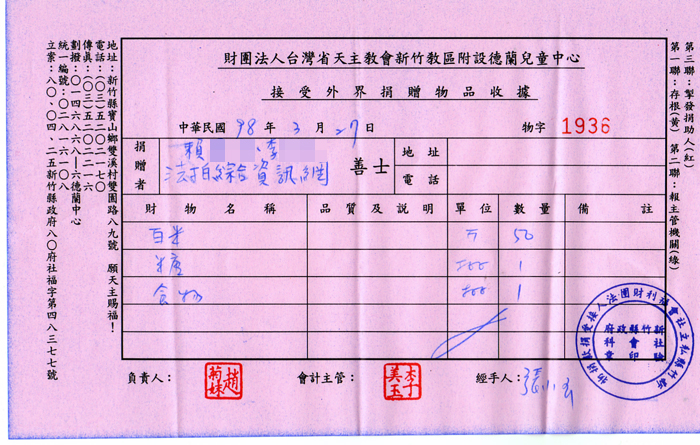 財團法人台灣省天主教會新竹教區附設德蘭兒童中心
接受外界捐贈物品收據
中華民國 98 年 3 月 27 日
物字 1936
捐贈者
賴 、李
法拍綜合資訊網
善士
地址
電話
財物名稱 品質及說明 單位 數量 備註
白米 斤 50
米產 1
食物 1
負責人：
趙菊妹
會計主管：
李丁美玉
經手人：
張小玉
第三聯：掣發捐助人(紅)
第一聯：存根(黃) 第二聯：報主管機關(綠)
地址：新竹縣寶山鄉雙溪村雙園路八九號 願天主賜福！
電話：(〇三)五二〇二一七〇
傳真：(〇三)五二〇二二一六
劃撥：〇一四六八六八一六德蘭中心
統一編號：〇二八一六一〇八
立案：八〇、〇四、二五新竹縣政府八〇府社福字第四八三七七號